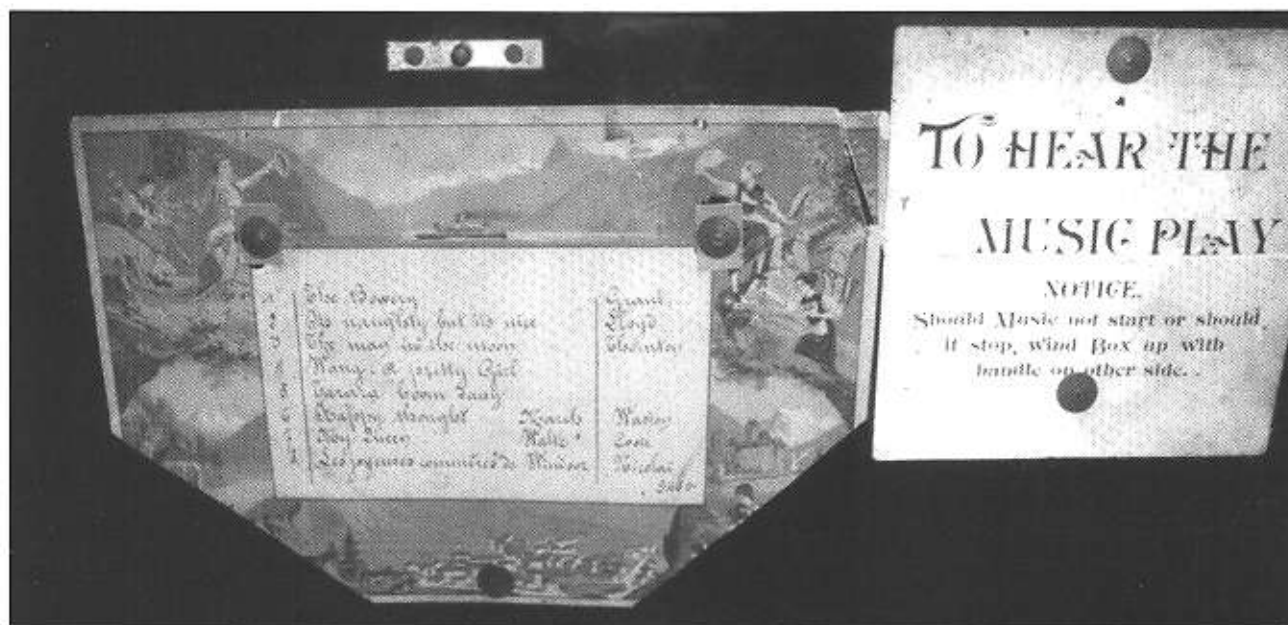 1 The Bowery Grant
2 Its naughty but its nice Lloyd
3 The man in the moon
4 Wang: A pretty Girl
5 Tarara boom
6 Happy thought March
7 My Queen Waltz Coote
8 Les joyeuses commères de Windsor Nicolai
TO HEAR THE
MUSIC PLAY
NOTICE.
Should Music not start or should
it stop, wind Box up with
handle on other side.